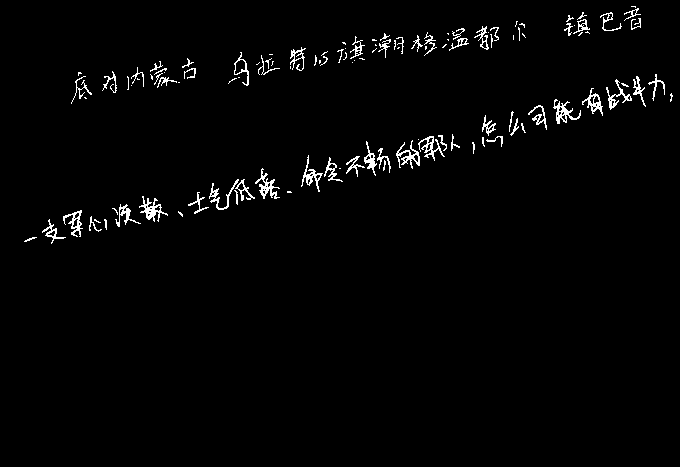 底对内蒙古 乌拉特后旗潮格温都尔 镇巴音
一支军心涣散、士气低落、命令不畅的军队,怎么可能有战斗力,